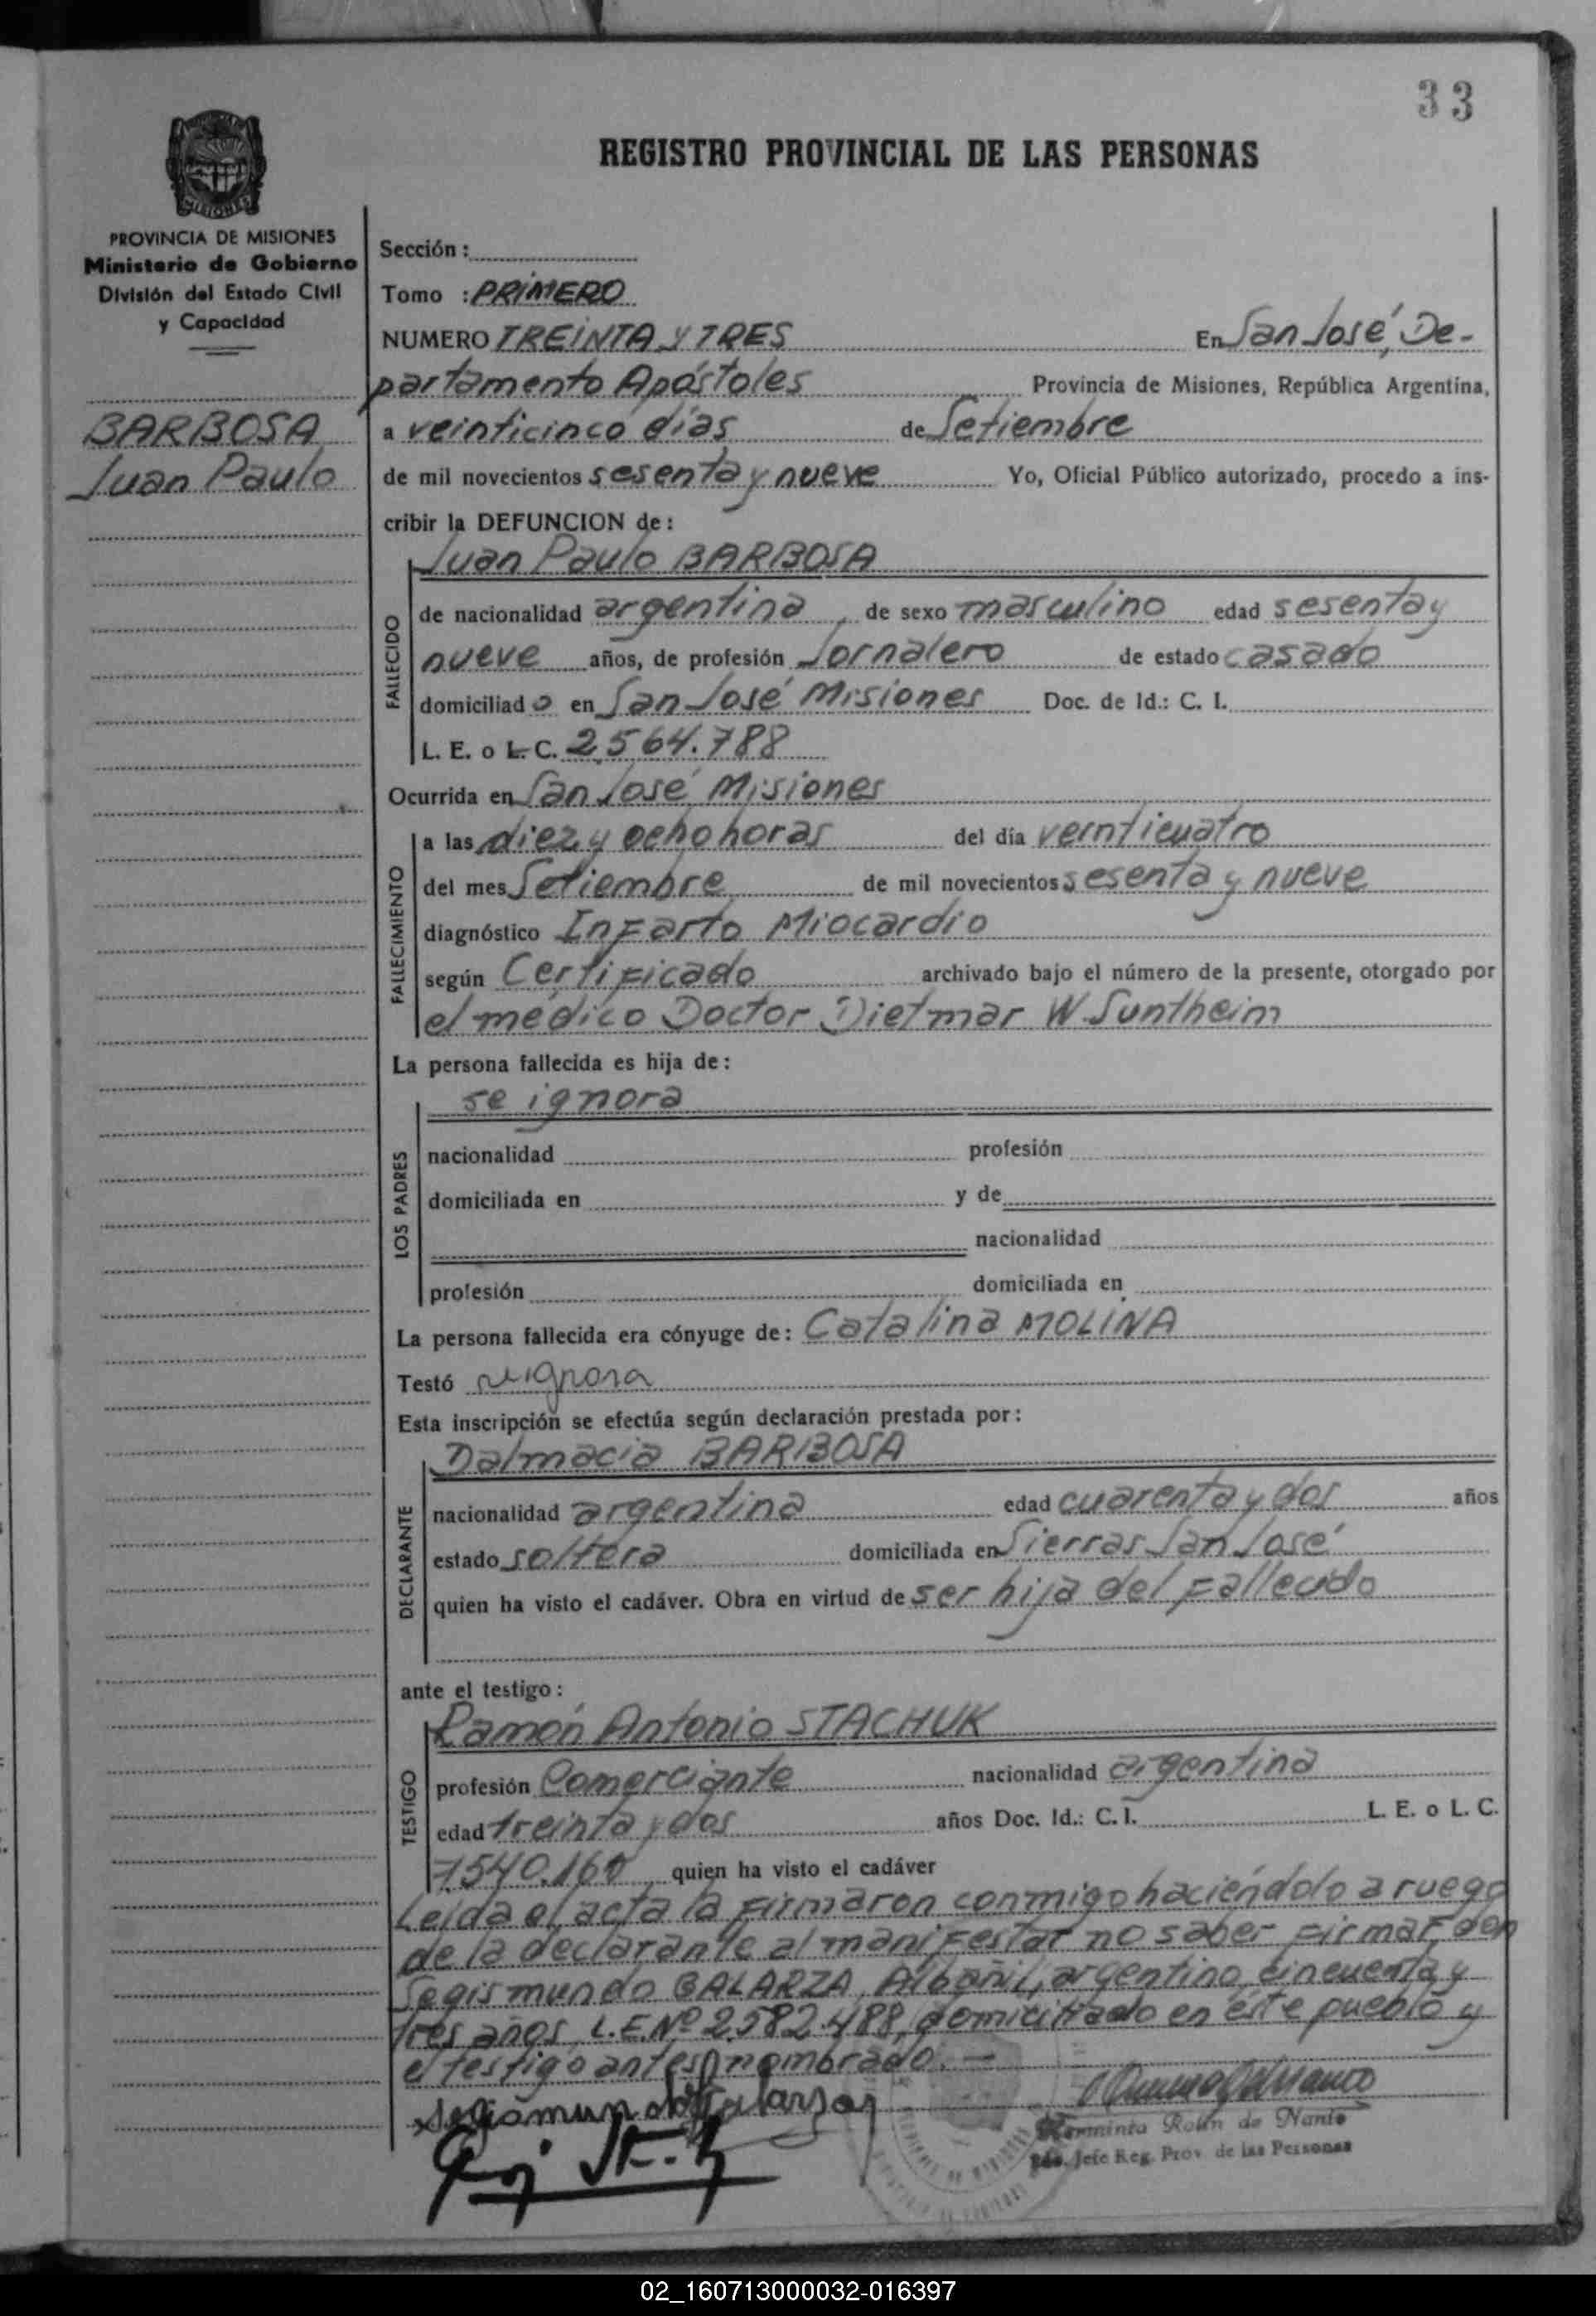 33
REGISTRO PROVINCIAL DE LAS PERSONAS
MISIONES
PROVINCIA DE MISIONES
Ministerio de Gobierno
División del Estado Civil
y Capacidad
BARBOSA
Juan Paulo
Sección :
Tomo : PRIMERO
NUMERO TREINTA Y TRES En San José, De-
partamento Apóstoles Provincia de Misiones, República Argentina,
a veinticinco días de Setiembre
de mil novecientos sesenta y nueve Yo, Oficial Público autorizado, procedo a ins-
cribir la DEFUNCION de :
Juan Paulo BARBOSA
FALLECIDO
de nacionalidad argentina, de sexo masculino edad sesenta y
nueve años, de profesión Jornalero de estado casado
domiciliado en San José Misiones Doc. de Id.: C. I.
L. E. o L. C. 2.564.788
Ocurrida en San José Misiones
FALLECIMIENTO
a las diez y ocho horas del día veinticuatro
del mes Setiembre de mil novecientos sesenta y nueve
diagnóstico Infarto Miocardio
según Certificado archivado bajo el número de la presente, otorgado por
el médico Doctor Dietmar W. Suntheim
La persona fallecida es hija de :
LOS PADRES
se ignora
nacionalidad profesión
domiciliada en y de
nacionalidad
profesión domiciliada en
La persona fallecida era cónyuge de : Catalina MOLINA
Testó se ignora
Esta inscripción se efectúa según declaración prestada por :
DECLARANTE
Dalmacia BARBOSA
nacionalidad argentina edad cuarenta y dos años
estado soltera domiciliada en Sierras San José
quien ha visto el cadáver. Obra en virtud de ser hija del fallecido
ante el testigo :
TESTIGO
Ramón Antonio STACHUK
profesión Comerciante nacionalidad argentina
edad treinta y dos años Doc. Id.: C. I. L. E. o L. C.
7.540.160 quien ha visto el cadáver
Leída el acta la firmaron conmigo haciéndolo a ruego
de la declarante al manifestar no saber firmar, don
Segismundo GALARZA, Albañil, argentino, cincuenta y
tres años, L.E.Nº 2.582.488, domiciliado en éste pueblo y
el testigo antes nombrado. —
Segismundo Galarza
Herminia Rolin de Nanto
Jefe Reg. Prov. de las Personas
02_160713000032-016397